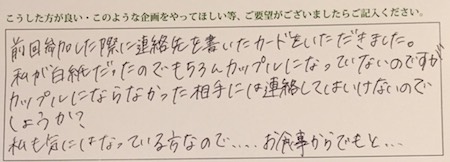 こうした方が良い・このような企画をやってほしい等、ご要望がございましたらご記入ください。
前回参加した際に連絡先を書いたカードをいただきました。
私が白紙だったのでもちろんカップルになっていないのですが
カップルにならなかった相手には連絡してはいけないので
しょうか？
私も気にはなっている方なので....お食事からでもと...